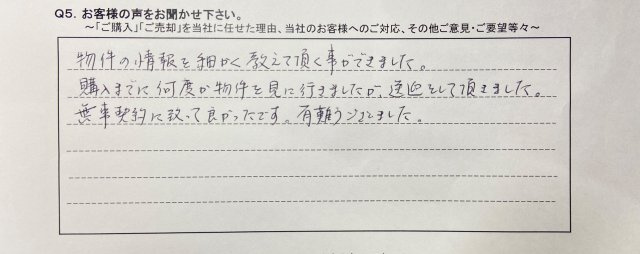 Q5. お客様の声をお聞かせ下さい。
～「ご購入」「ご売却」を当社に任せた理由、当社のお客様へのご対応、その他ご意見・ご要望等々～
物件の情報を細かく教えて頂く事ができました。
購入までに何度か物件を見に行きましたが、送迎をして頂きました。
無事契約に致って良かったです。有難うございました。